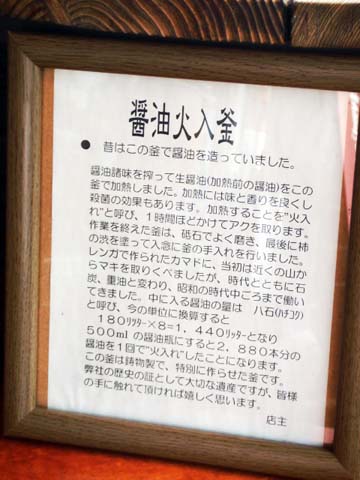 醤油火入釜
● 昔はこの釜で醤油を造っていました。
醤油諸味を搾って生醤油(加熱前の醤油)をこの
釜で加熱しました。加熱には味と香りを良くし
殺菌の効果もあります。加熱することを"火入
れ"と呼び、1時間ほどかけてアクを取ります。
作業を終えた釜は、砥石でよく磨き、最後に柿
の渋を塗って入念に釜の手入れを行いました。
レンガで作られたカマドに、当初は近くの山か
らマキを取りくべましたが、時代とともに石
炭、重油と変わり、昭和の時代中ごろまで働い
てきました。中に入る醤油の量は 八石(ハチコク)
と呼び、今の単位に換算すると
180リッター×8=1,440リッターとなり
500mlの醤油瓶にすると2,880本分の
醤油を1回で"火入れ"したことになります。
この釜は鋳物製で、特別に作らせた釜です。
弊社の歴史の証として大切な遺産ですが、皆様
の手に触れて頂ければ嬉しく思います。
店主